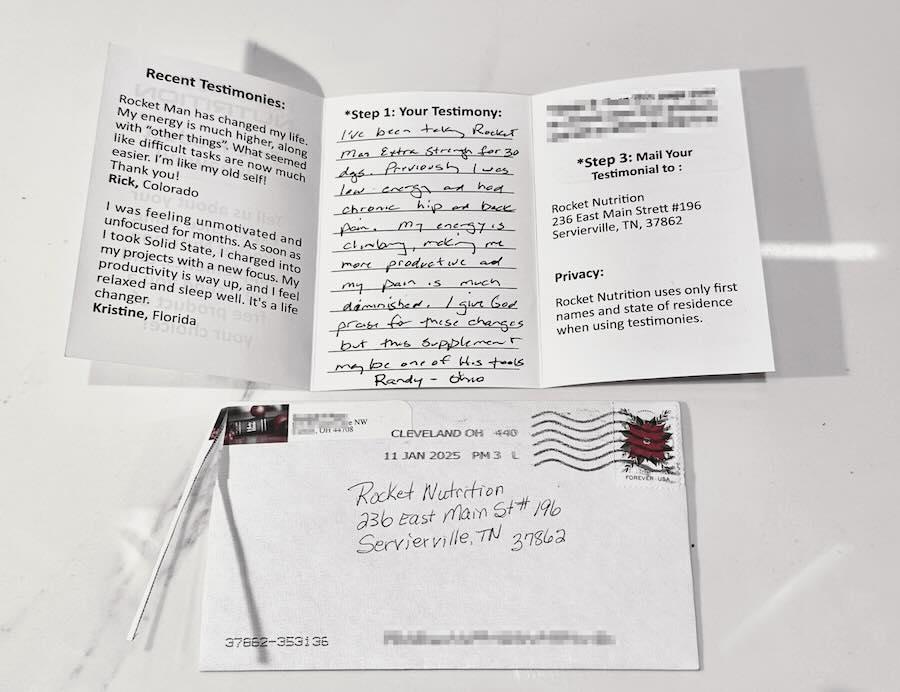 Recent Testimonies:
Rocket Man has changed my life.
My energy is much higher, along
with “other things”. What seemed
like difficult tasks are now much
easier. I’m like my old self!
Thank you!
Rick, Colorado
I was feeling unmotivated and
unfocused for months. As soon as
I took Solid State, I charged into
my projects with a new focus. My
productivity is way up, and I feel
relaxed and sleep well. It's a life
changer.
Kristine, Florida
*Step 1: Your Testimony:
I've been taking Rocket
Man Extra Strength for 30
days. Previously I was
low energy and had
chronic hip and back
pain. My energy is
climbing, making me
more productive and
my pain is much
diminished. I give God
praise for these changes
but this supplement
maybe one of His tools
Randy - Ohio
*Step 3: Mail Your
Testimonial to :
Rocket Nutrition
236 East Main Strett #196
Servierville, TN, 37862
Privacy:
Rocket Nutrition uses only first
names and state of residence
when using testimonies.
NW
OH 44708
CLEVELAND OH 440
11 JAN 2025 PM 3 L
FOREVER-USA
Rocket Nutrition
236 East Main St # 196
Servierville, TN 37862
37862-353136